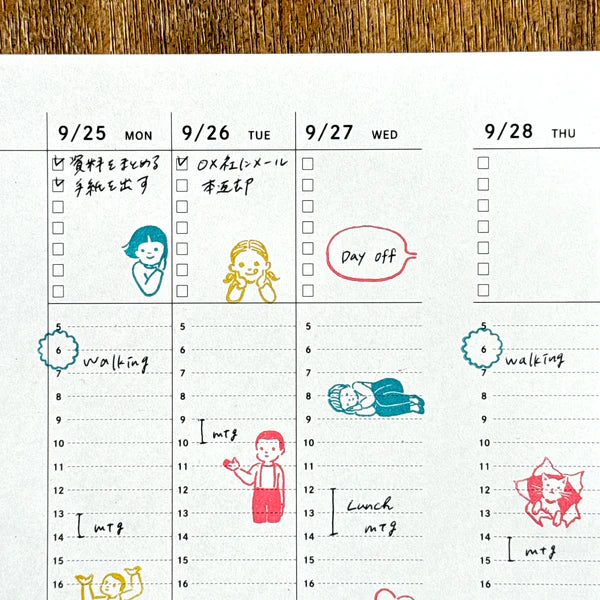 9/25 MON
資料をまとめる
手紙を出す
5
6
walking
7
8
9
10
11
12
13
mtg
14
15
16
9/26 TUE
OX社にメール
本返却
5
6
7
8
9
mtg
10
11
12
13
14
15
16
9/27 WED
Day off
5
6
7
8
9
10
11
12
Lunch
13
mtg
14
15
16
9/28 THU
5
6
walking
7
8
9
10
11
12
13
14
mtg
15
16